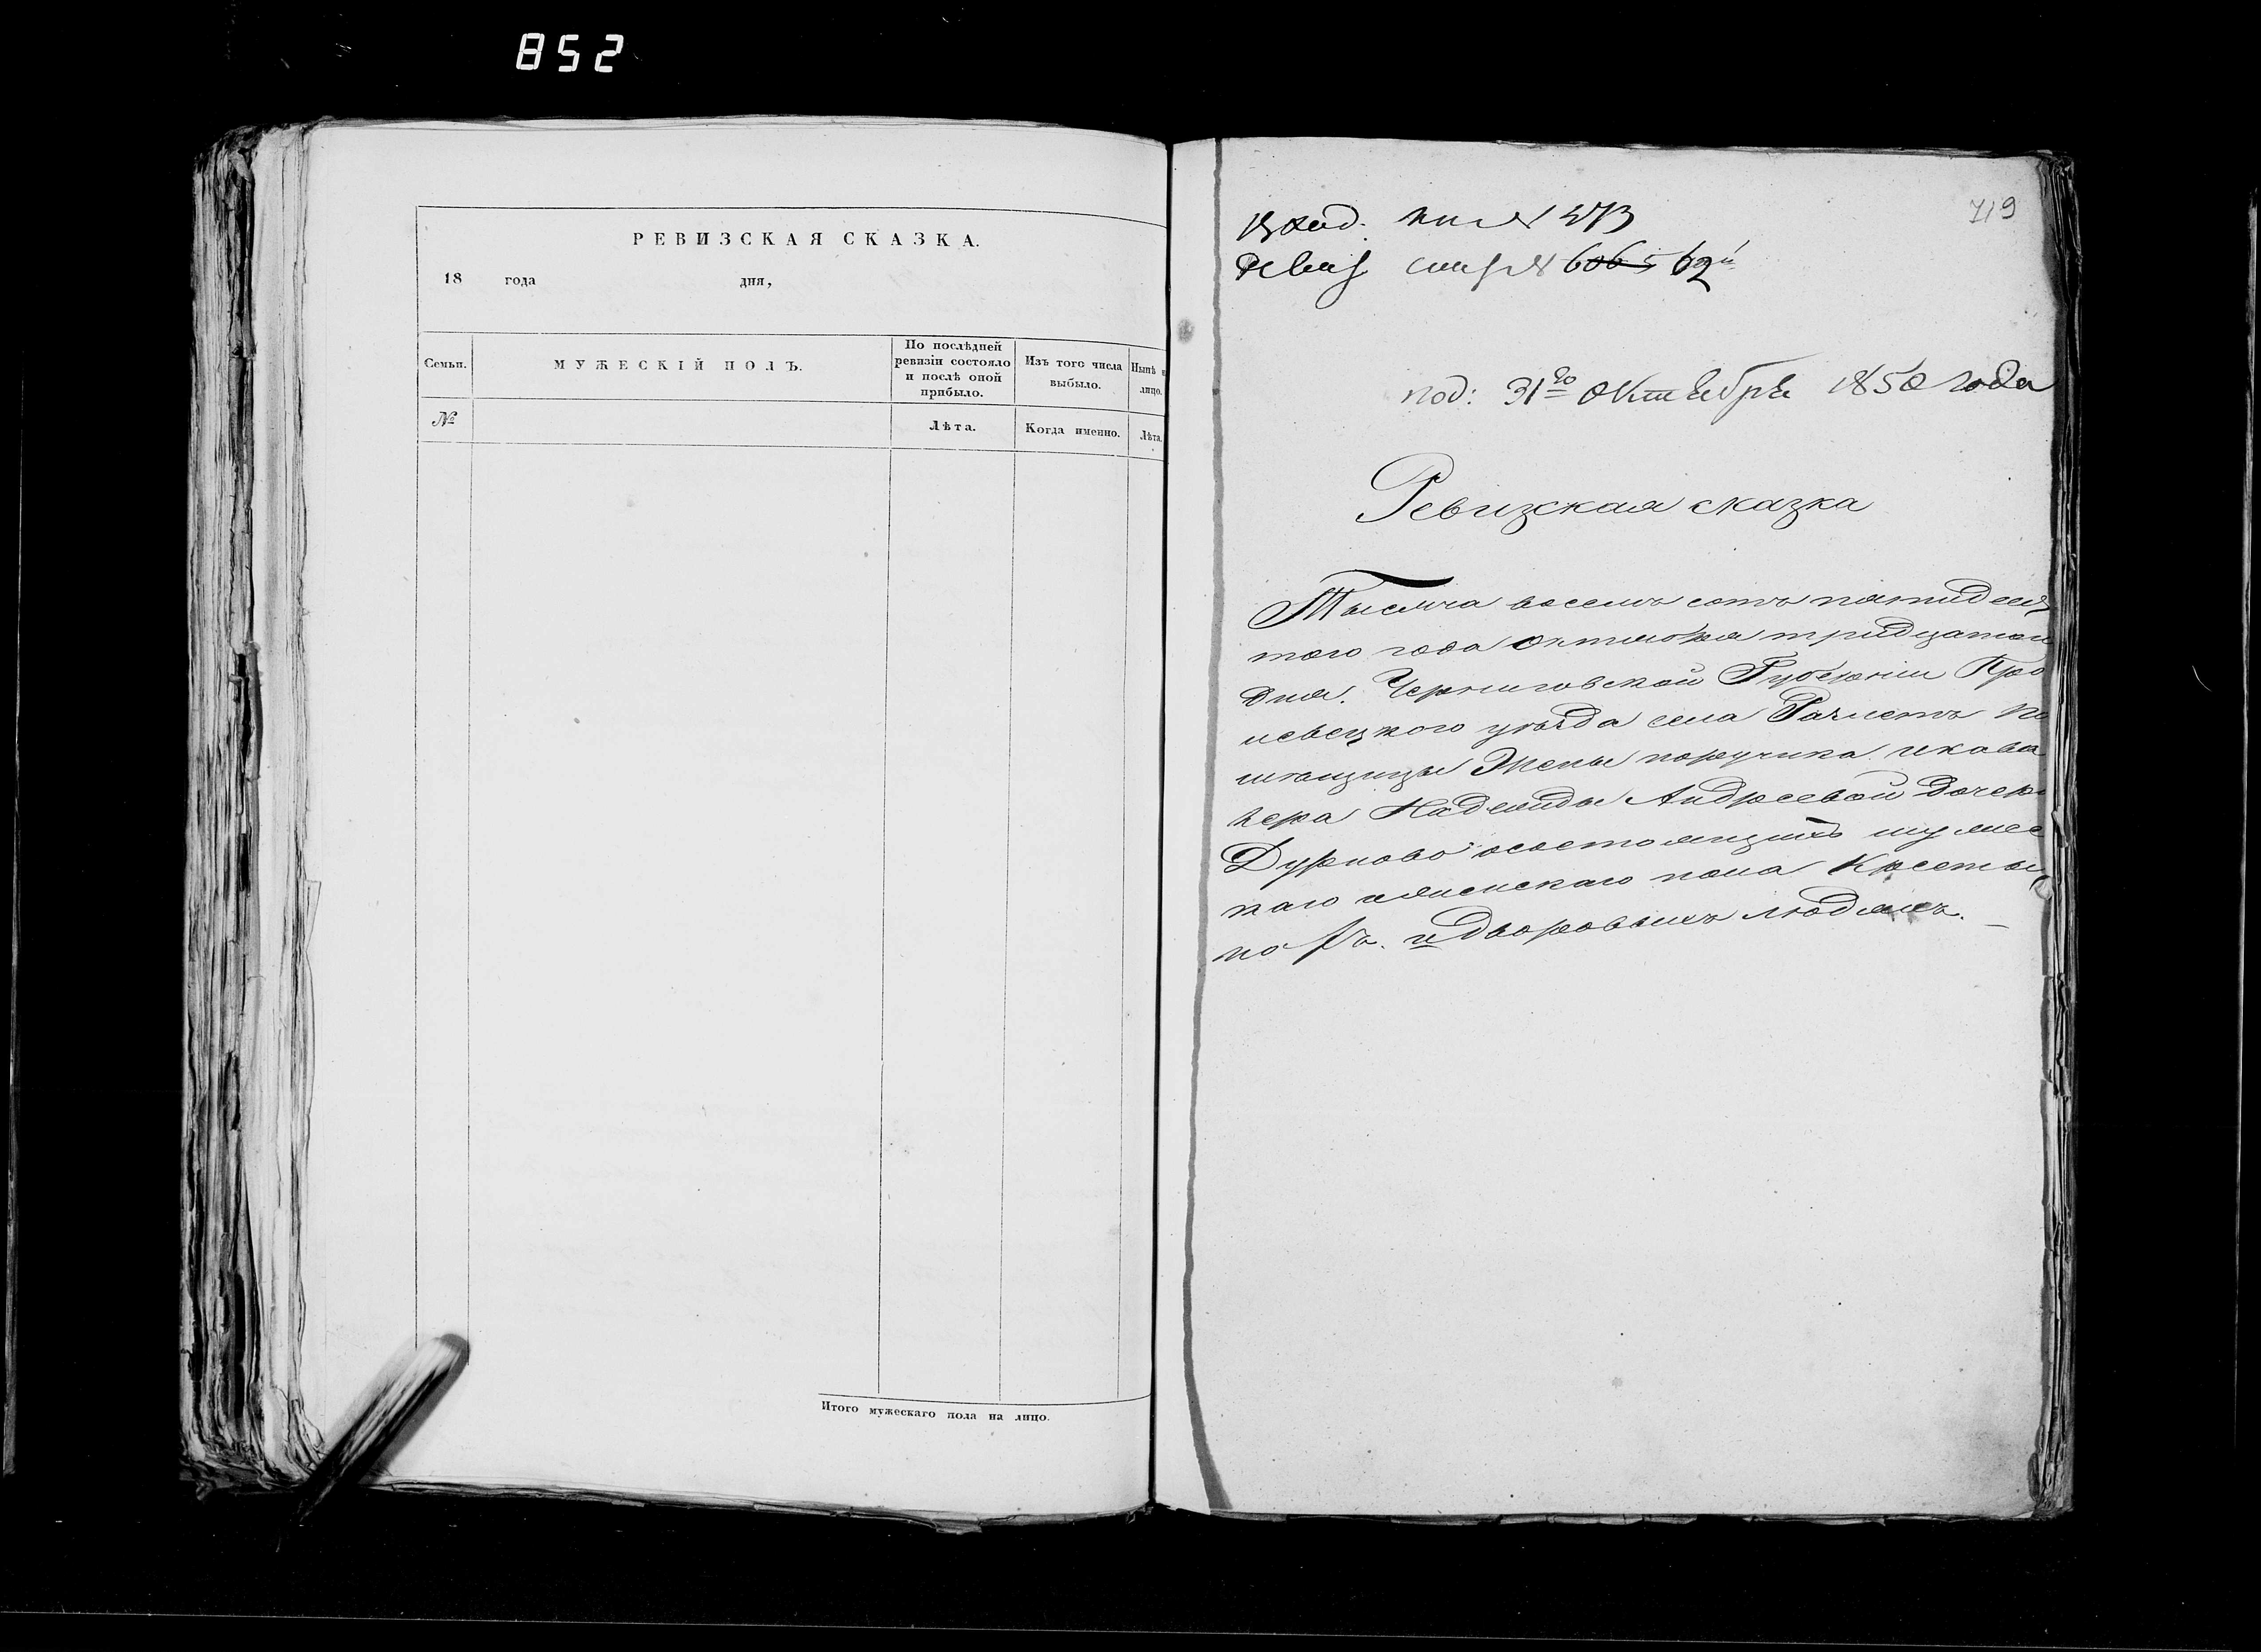 852
РЕВИЗСКАЯ СКАЗКА.
18 года дня,
Семьи.
МУЖЕСКІЙ ПОЛЪ.
По послѣдней ревизіи состояло и послѣ оной прибыло.
Изъ того числа выбыло.
Нынѣ на лицо.
№
Лѣта.
Когда именно.
Лѣта.
Итого мужескаго пола на лицо.
719
Вход.
62
под: 31го Октября 1850 года
Ревизская сказка
Тысяча восемь сотъ пятидеся
того года октября тридцатого
дня. Черниговской Губерніи Кро
левецкого уѣзда села Рачистъ По
мѣщицы Жены поручика и кава
лера Надежды Андреевой Дочери
Дурново о состоящихъ мужес
каго и женскаго пола Крестья
нахъ. и дворовыхъ людяхъ.